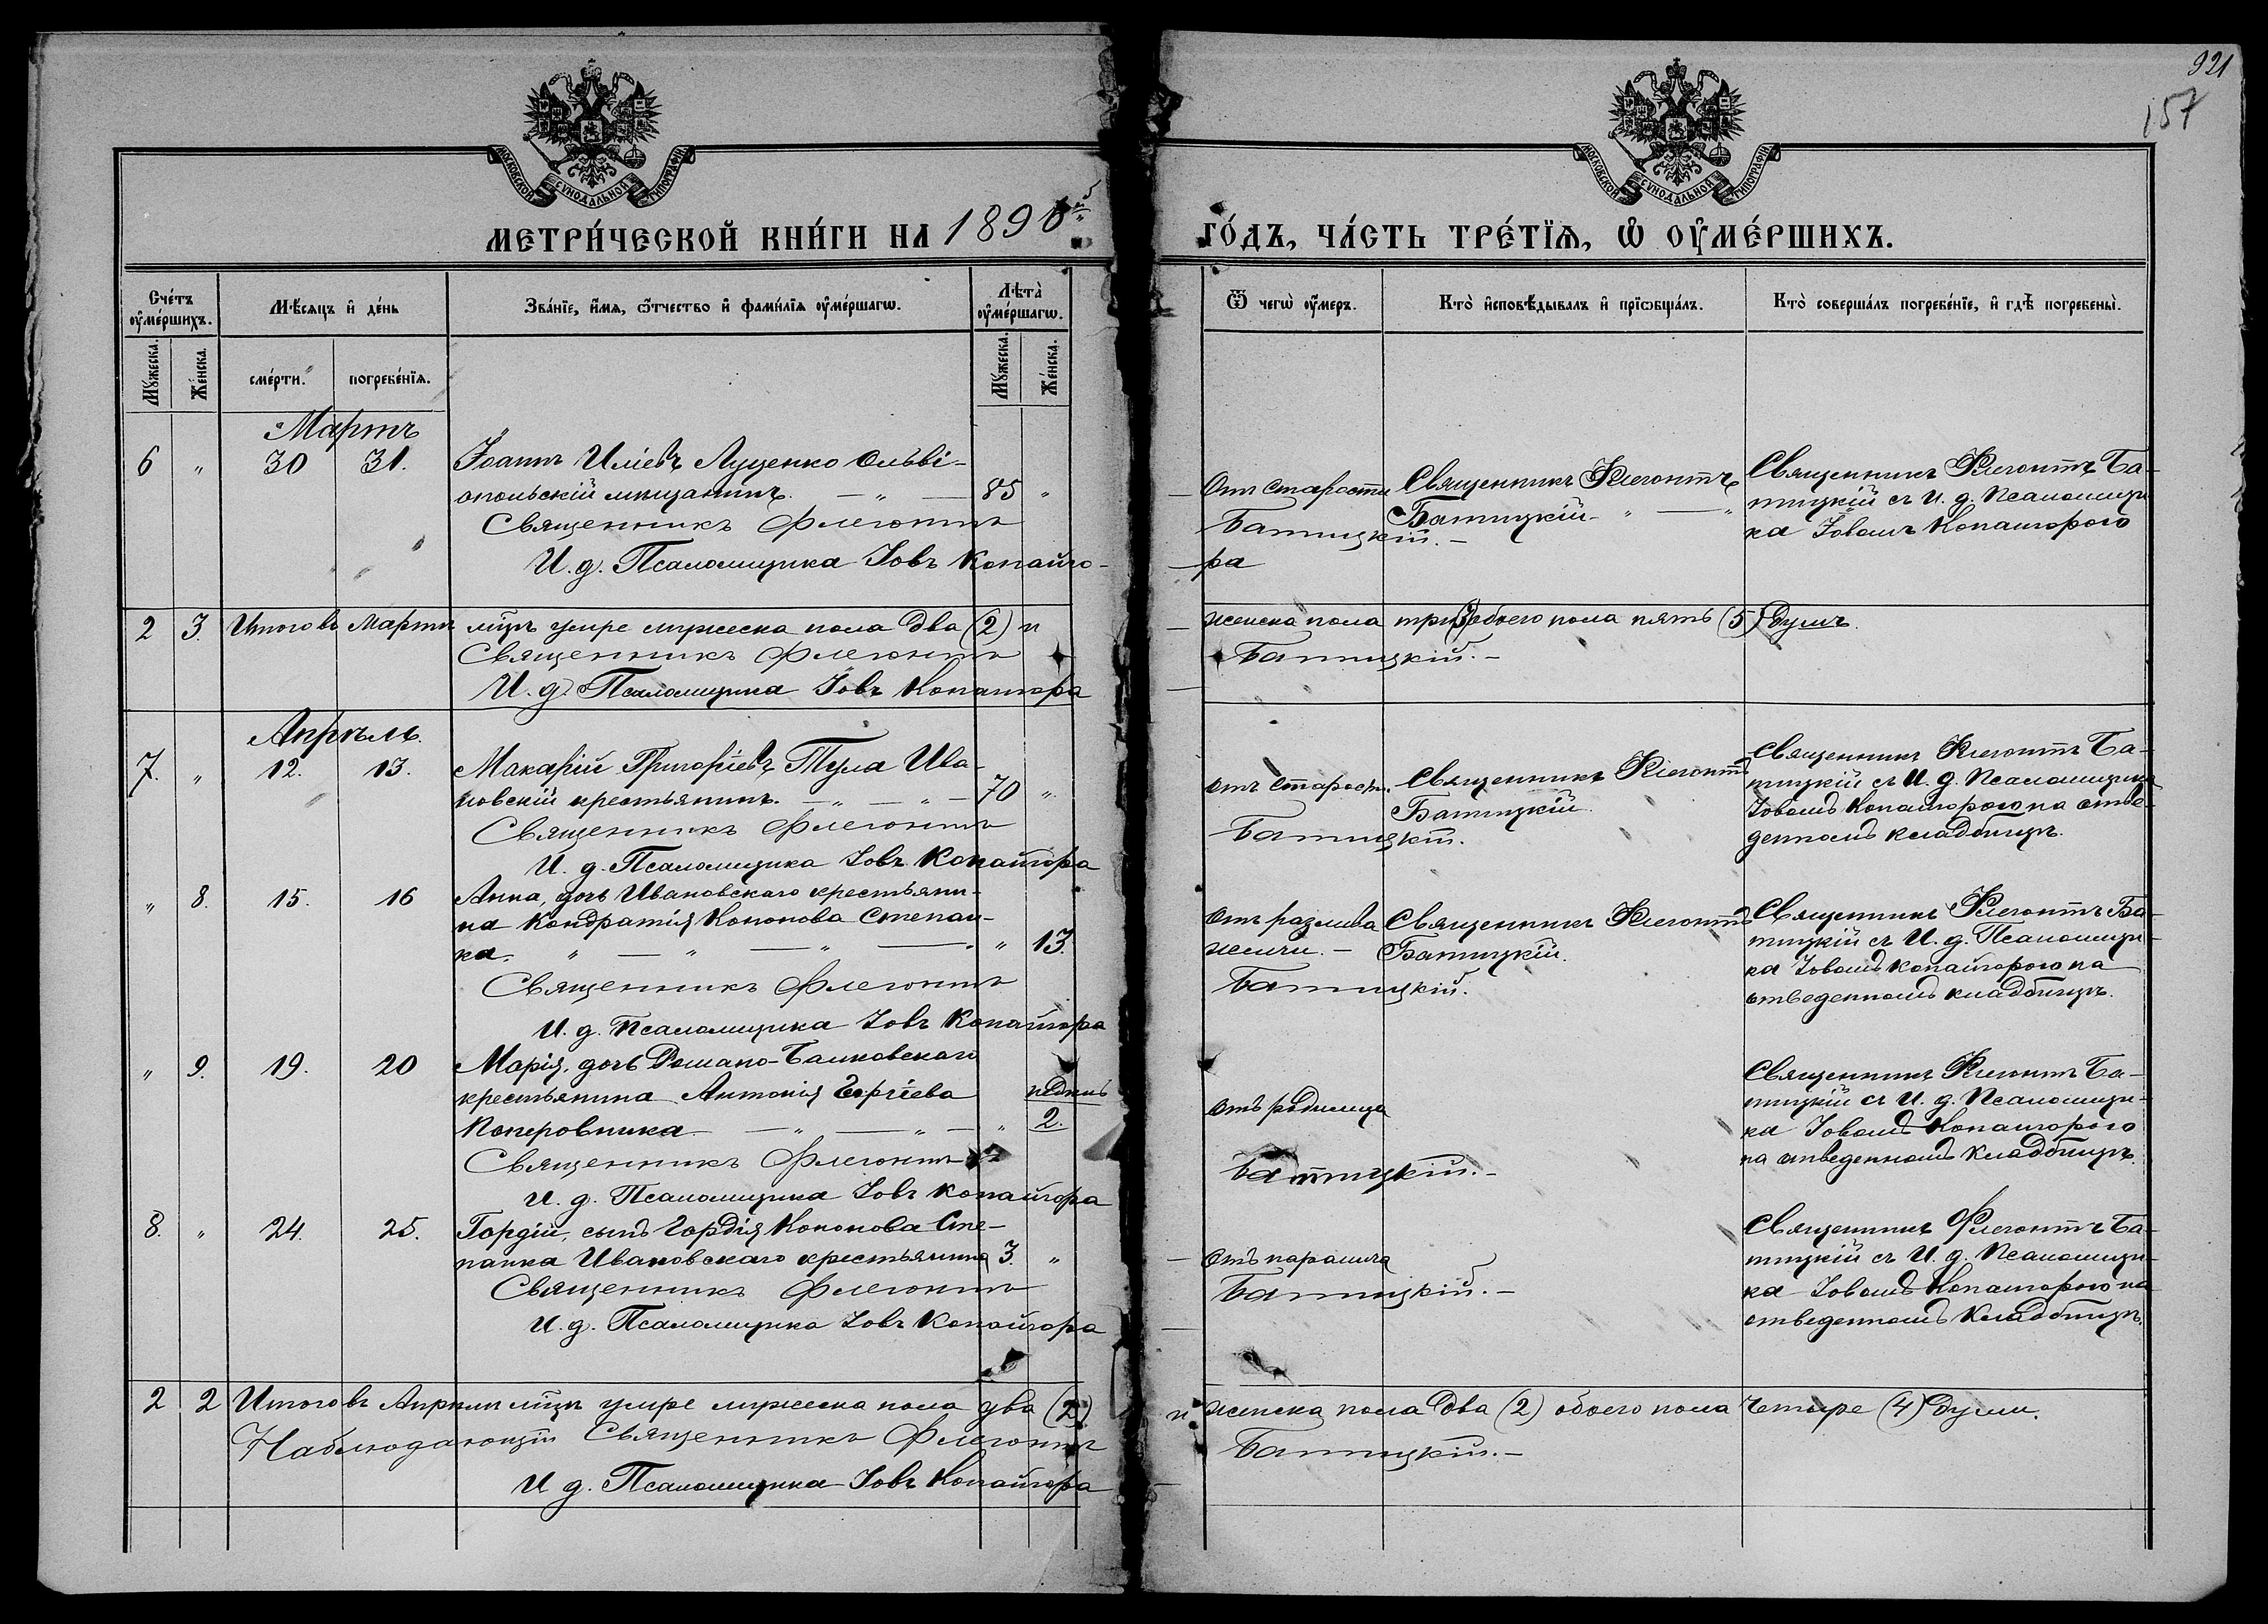 921
157
МОСКОВСКОЙ СУНОДАЛЬНОЙ ТИПОГРАФІИ
МОСКОВСКОЙ СУНОДАЛЬНОЙ ТИПОГРАФІИ
МЕТРИ́ЧЕСКОЙ КНИ́ГИ НА 189
ГО́ДЪ, ЧА́СТЬ ТРЕ́ТІѦ, Ѡ҆ ОУ҆МЕ́РШИХЪ.
Сче́тъ оу҆ме́ршихъ.
Мѣ́сяцъ и҆ де́нь
Зва́нїе, и҆́мѧ, ѻ҆́тчество и҆ фами́лїѧ оу҆ме́ршагѡ.
Лѣта̀ оу҆ме́ршагѡ.
Ѿ чегѡ̀ оу҆́меръ.
Кто̀ и҆сповѣ́дывалъ и҆ прїѡбща́лъ.
Кто̀ соверша́лъ погребе́нїе, и҆ гдѣ̀ погребены̀.
Му́жеска.
Же́нска.
сме́рти.
погребе́нїѧ.
Му́жеска.
Же́нска.
Мартъ
6 " 30 31. Іоаннъ Иліевъ Луценко Ольві-
опольскій мѣщанинъ. — " — 85 "
Священникъ Флегонтъ
И. д. Псаломщика Іовъ Копайго-
Отъ старости
Батицкій. —
ра
Священникъ Флегонтъ
Батицкій
Священникъ Флегонтъ Ба-
тицкій съ И. д. Псаломщи
ка Іовомъ Копайгорого
2 3. Итого въ Мартѣ м͠цѣ умре мужеска пола два (2) и
женска пола три (3) обоего пола пять (5) душъ.
Священникъ Флегонтъ
Батицкій. —
И. д. Псаломщика Іовъ Копайгора
Апрѣль.
7. " 12. 13. Макарій Григоріевъ Тула Ива-
новскій крестьянинъ. — " — " — 70 "
Священникъ Флегонтъ
И. д. Псаломщика Іовъ Копайгора
отъ старости.
Батицкій.
Священникъ Флегонтъ
Батицкій.
Священникъ Флегонтъ Ба-
тицкій съ И. д. Псаломщика
Іовомъ Копайгорого на отве-
денномъ кладбищѣ.
" 8. 15. 16 Анна, дочь Ивановскаго крестьяни-
на Кондратія Кононова Степан-
ка. " — " — " 13.
Священникъ Флегонтъ
И. д. Псаломщика Іовъ Копайгора
Отъ разлива
желчи. —
Батицкій.
Священникъ Флегонтъ
Батицкій.
Священникъ Флегонтъ Ба-
тицкій съ И. д. Псаломщи-
ка Іовомъ Копайгорого на
отведенномъ кладбищѣ.
" 9. 19. 20 Марія, дочь Романо-Балковскаго
крестьянина Антонія
— " — " — "
2.
Священникъ Флегонтъ
И. д. Псаломщика Іовъ Копайгора
отъ родимца
Батицкій. —
Священникъ Флегонтъ Ба-
тицкій съ И. д. Псаломщи-
ка Іовомъ Копайгорого
на отведенномъ кладбищѣ.
8. " 24. 25. Гордій, сынъ Гордія Кононова Сте-
панка Ивановскаго крестьянина 3. "
Священникъ Флегонтъ
И. д. Псаломщика Іовъ Копайгора
отъ паралича
Батицкій. —
Священникъ Флегонтъ Ба-
тицкій съ И. д. Псаломщи-
ка Іовомъ Копайгорого на
отведенномъ кладбищѣ.
2 2 Итого въ Апрѣлѣ м͠цѣ умре мужеска пола два (2)
и женска пола два (2) обоего пола четыре (4) души.
Наблюдающій Священникъ Флегонтъ
Батицкій. —
И д. Псаломщика Іовъ Копайгора